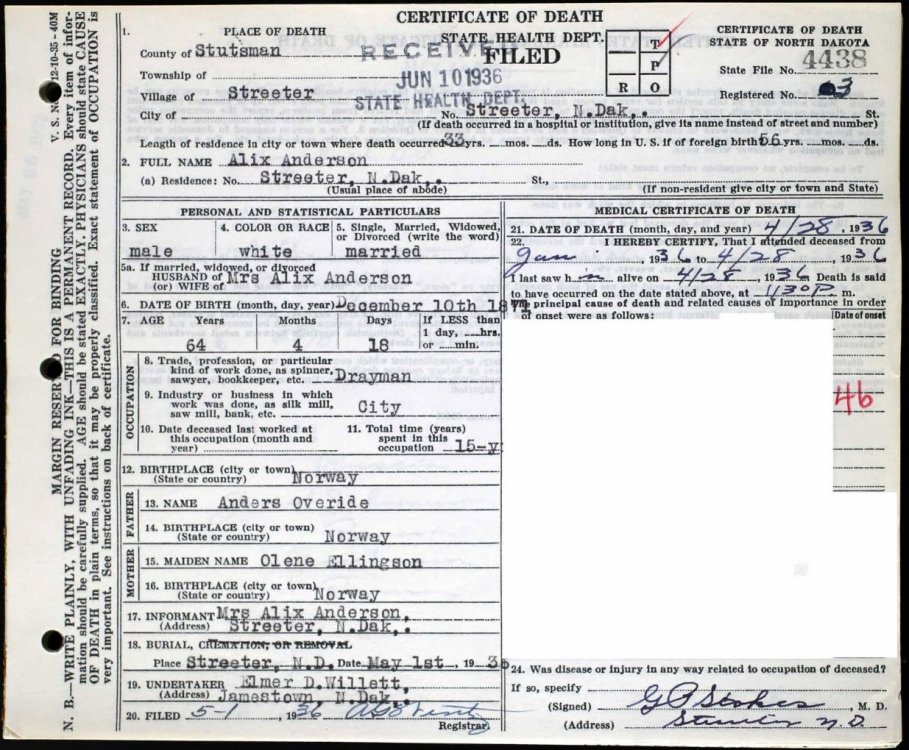 CERTIFICATE OF DEATH
1. PLACE OF DEATH
STATE HEALTH DEPT.
CERTIFICATE OF DEATH
STATE OF NORTH DAKOTA
County of Stutsman
RECEIVED
FILED
T
P
R O
State File No. 4438
Township of
JUN 10 1936
Registered No. 3
Village of Streeter
STATE HEALTH DEPT.
City of
No. Streeter, N.Dak,. St.
(If death occurred in a hospital or institution, give its name instead of street and number)
Length of residence in city or town where death occurred 33 yrs. mos. ds. How long in U. S. if of foreign birth? 56 yrs. mos. ds.
2. FULL NAME Alix Anderson
(a) Residence: No. Streeter, N.Dak,. St.,
(Usual place of abode)
(If non-resident give city or town and State)
PERSONAL AND STATISTICAL PARTICULARS
3. SEX
4. COLOR OR RACE
5. Single, Married, Widowed, or Divorced (write the word)
male
white
married
5a. If married, widowed, or divorced
HUSBAND of Mrs Alix Anderson
(or) WIFE of
6. DATE OF BIRTH (month, day, year) December 10th 1871
7. AGE Years Months Days If LESS than
1 day, hrs.
64 4 18 or min.
OCCUPATION
8. Trade, profession, or particular
kind of work done, as spinner,
sawyer, bookkeeper, etc. Drayman
9. Industry or business in which
work was done, as silk mill,
saw mill, bank, etc. City
10. Date deceased last worked at
this occupation (month and
year)
11. Total time (years)
spent in this
occupation 15-y
12. BIRTHPLACE (city or town)
(State or country) Norway
FATHER
13. NAME Anders Overide
14. BIRTHPLACE (city or town)
(State or country) Norway
MOTHER
15. MAIDEN NAME Olene Ellingson
16. BIRTHPLACE (city or town)
(State or country) Norway
17. INFORMANT Mrs Alix Anderson,
(Address) Streeter, N.Dak,.
18. BURIAL, CREMATION, OR REMOVAL
Place Streeter, N.D. Date May 1st, 1936
19. UNDERTAKER Elmer D.Willett,
(Address) Jamestown, N.Dak,.
20. FILED 5-1, 1936
Registrar.
MEDICAL CERTIFICATE OF DEATH
21. DATE OF DEATH (month, day, and year) 4/28, 1936
22. I HEREBY CERTIFY, That I attended deceased from
Jan 1936 to 4/28, 1936
I last saw h im alive on 4/28 1936 Death is said
to have occurred on the date stated above, at 1130P m.
The principal cause of death and related causes of importance in order
of onset were as follows:
Date of onset
46
24. Was disease or injury in any way related to occupation of deceased?
If so, specify
(Signed) G P Stokes, M. D.
(Address) Streeter N.D.
V. S. No. 12-10-35-40M
MARGIN RESERVED FOR BINDING
N. B.—WRITE PLAINLY, WITH UNFADING INK—THIS IS A PERMANENT RECORD. Every item of infor-
mation should be carefully supplied. AGE should be stated EXACTLY. PHYSICIANS should state CAUSE
OF DEATH in plain terms, so that it may be properly classified. Exact statement of OCCUPATION is
very important. See instructions on back of certificate.